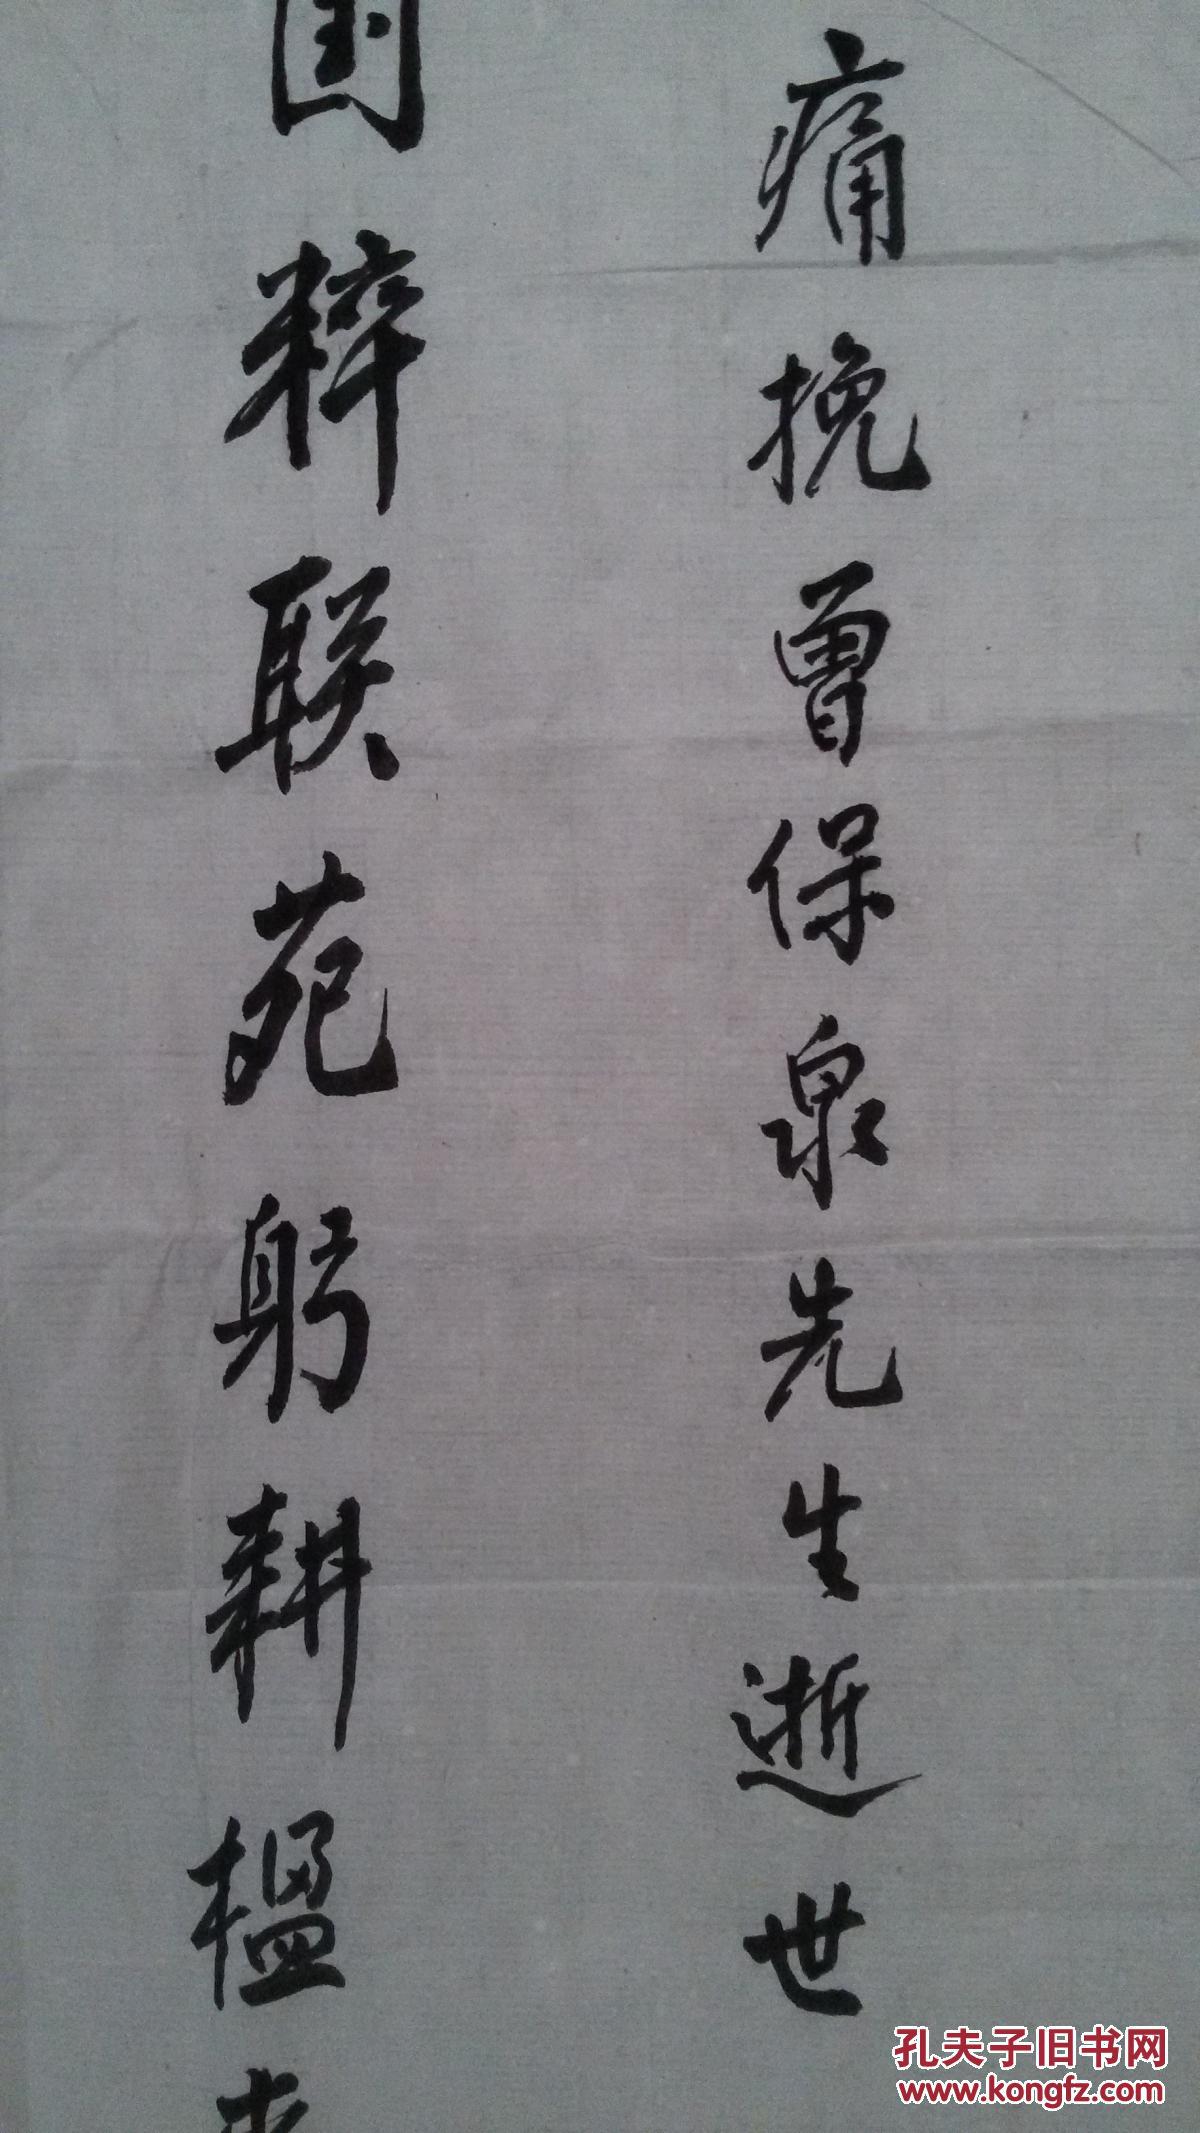 痛挽曾保泉先生逝世
国粹联苑躬耕楹
孔夫子旧书网
www.kongfz.com